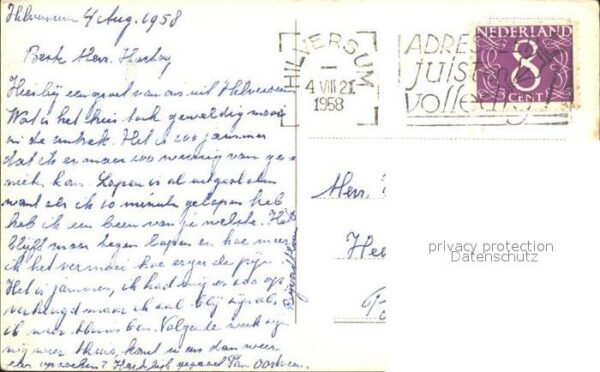 Hilversum 4 Aug. 1958
Beste Herr.
Hierbij een groet van ons uit Hilversum
Wat is het hier toch geweldig mooi
in de omtrek. Het is zoo jammer
dat ik er maar zoo weinig van ge=
nieten kan. Lopen is al uitgesloten
want als ik 10 minuten gelopen heb
heb ik een been van je welste. Het
blijft maar tegen lopen en hoe meer
ik het vermoei hoe erger de pijn
Het is jammer, ik had mij er zoo op
verheugd maar ik zal blij zijn als
ik weer thuis ben. Volgende week zijn
wij weer thuis, komt u ons dan weer
eens opzoeken? Hartelijk gegroet Fam
HILVERSUM
4 VIII 21
1958
ADRES
juist
volledig!
NEDERLAND
8
CENT
Herr.
Hee
privacy protection
Datenschutz